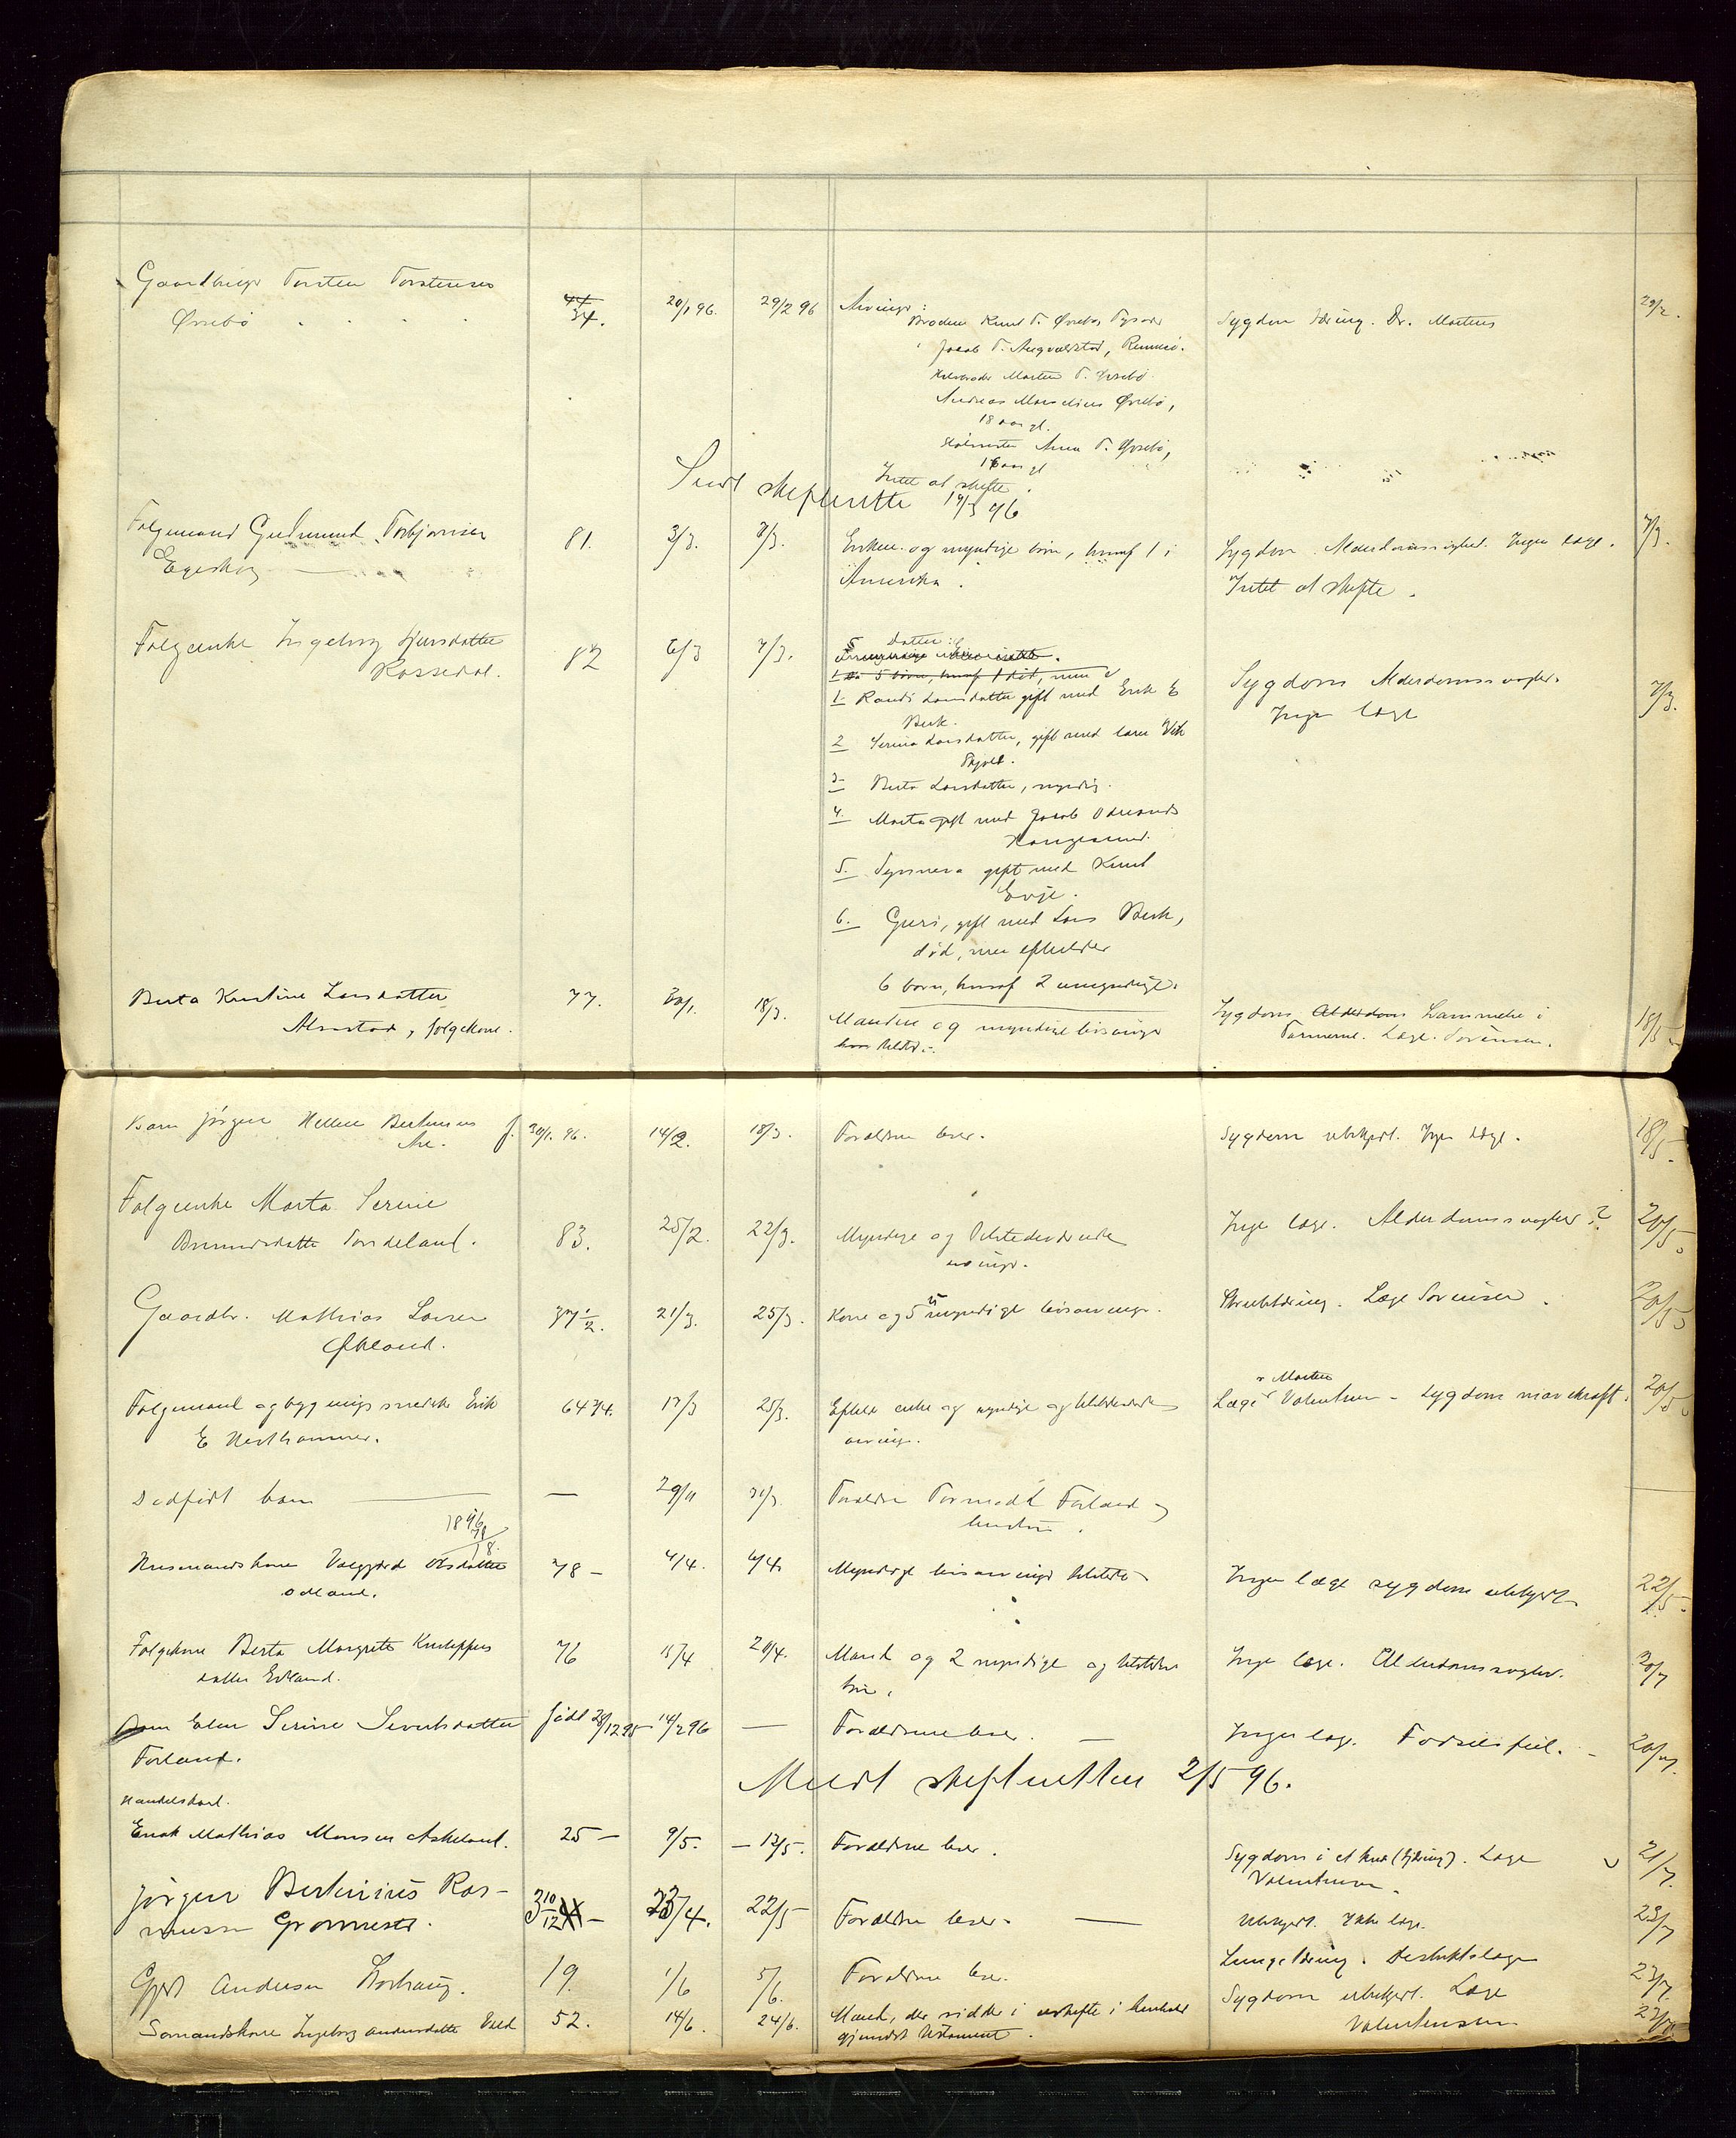 Gaardbruger Torsten Torstensen
Øvrebø . . . .
44
34.
20/1 96.
29/2 96
Arvinger:
Brødre Knut T. Øvrebø, Tysvær
Jacob T. Augvaldstad, Rennesø.
Halvbroder Morten T. Øvrebø
Andreas Marselius Øvrebø,
18 aar gl.
Halvsøster Anna T. Øvrebø,
16 aar gl
Intet at skifte.
Sygdom Tæring. Dr. Mortens
29/2.
Sendt skifteretten 14/3 96
Folgemand Gudmund Torbjørnsen
Egeskog
81.
3/3.
7/3.
Enken og myndige børn, hvoraf 1 i
Amerika.
Sygdom Alderdomssvaghed. Ingen læge.
Intet at skifte.
7/3.
Folgeenke Ingeborg
Rossedal.
82
6/3
7/3.
5 Datter:
5 børn, hvoraf 1 død, men
1 Randi Larsdatter gift med Erik E
Berk.
2 Serina Larsdatter, gift med Lars Vik
Skjold.
3 Berta Larsdatter, myndig.
4. Marta gift med Jacob Odmands
Haugesund.
5. Synneva gift med Knud
Evje.
6. Guri, gift med Lars Berk,
død, men efterlader
6 børn, hvoraf 2 umyndige.
Sygdom Alderdomssvaghed.
Ingen læge
7/3.
Berta Kristine Larsdatter
Alvestad, folgekone.
77.
30/1.
18/3.
Manden og myndige livsarvinger
tilsted.
Sygdom Alderdom Lammelse i
Tarmerne. Læge Sørensen.
18/5
Barn Jørgen Helleu Bertinius
f. 30/1. 96.
14/2.
18/3.
Forældrene lever.
Sygdom ubekjendt. Ingen læge.
18/5.
Folgeenke Marta Serine
Gunnarsdatter Tordeland.
83.
25/2.
22/3.
Myndige og tilstedeværende
arvinger.
Ingen læge. Alderdomssvaghed?
20/5.
Gaardbr. Mathias Larsen
Økland.
37 1/2.
21/3.
25/3.
Kone og 5 umyndige livsarvinger.
Strubetæring. Læge Sørensen.
20/5
Folgemand og bygningssnedker Erik
E Nesthammer.
64 3/4.
17/3
25/3.
Efterl. enke og myndige og tilstedeværende
arvinger.
Læge Valentinsen - Sygdom mavekræft.
v Mortens
20/5
Dødfødt barn
—
29/11
31/3
Forældre Tormod Førland og
hustru.
1896
78
18.
Husmandskone Valgjerd Olsdatter
Odland.
78 -
4/4.
6/4.
Myndige livsarvinger tilstede
Ingen læge sygdom ubekjendt
22/5.
Folgekone Berta Margrete Knuteppes
datter Eikland.
76
15/4
20/4.
Mand og 2 myndige og tilstedev.
børn.
Ingen læge. Alderdomssvaghed.
20/7
Barn Elen Serine Severtsdatter
Førland.
født 28/12 95
14/2 96
—
Forældrene lever. —
Ingen læge. Fødselsfeil.
20/7.
Meldt skifteretten 2/5 96.
Handelskarl.
Enok Mathias Monsen Askeland.
25 —
9/5.
— 12/5.
Forældrene lever.
Sygdom i et knæ (tæring). Læge
Valentinsen.
21/7.
Jørgen Bertinius Ras-
mussen Grønnestad.
3 10/12 —
23/4.
22/5
Forældrene lever. —
Ubekjendt. Ikke læge.
23/7
Gjert Andersen Storhaug.
19.
1/6
5/6.
Forældrene lever.
Lungetæring. Distriktslæge
23/7.
Sømandskone Ingeborg Andersdatter Eeld
52.
14/6.
24/6.
Mand, der sidder i uskifte i henhold
gjensidigt testament.
Sygdom ubekjendt. Læge
Valentinsen
23/7.